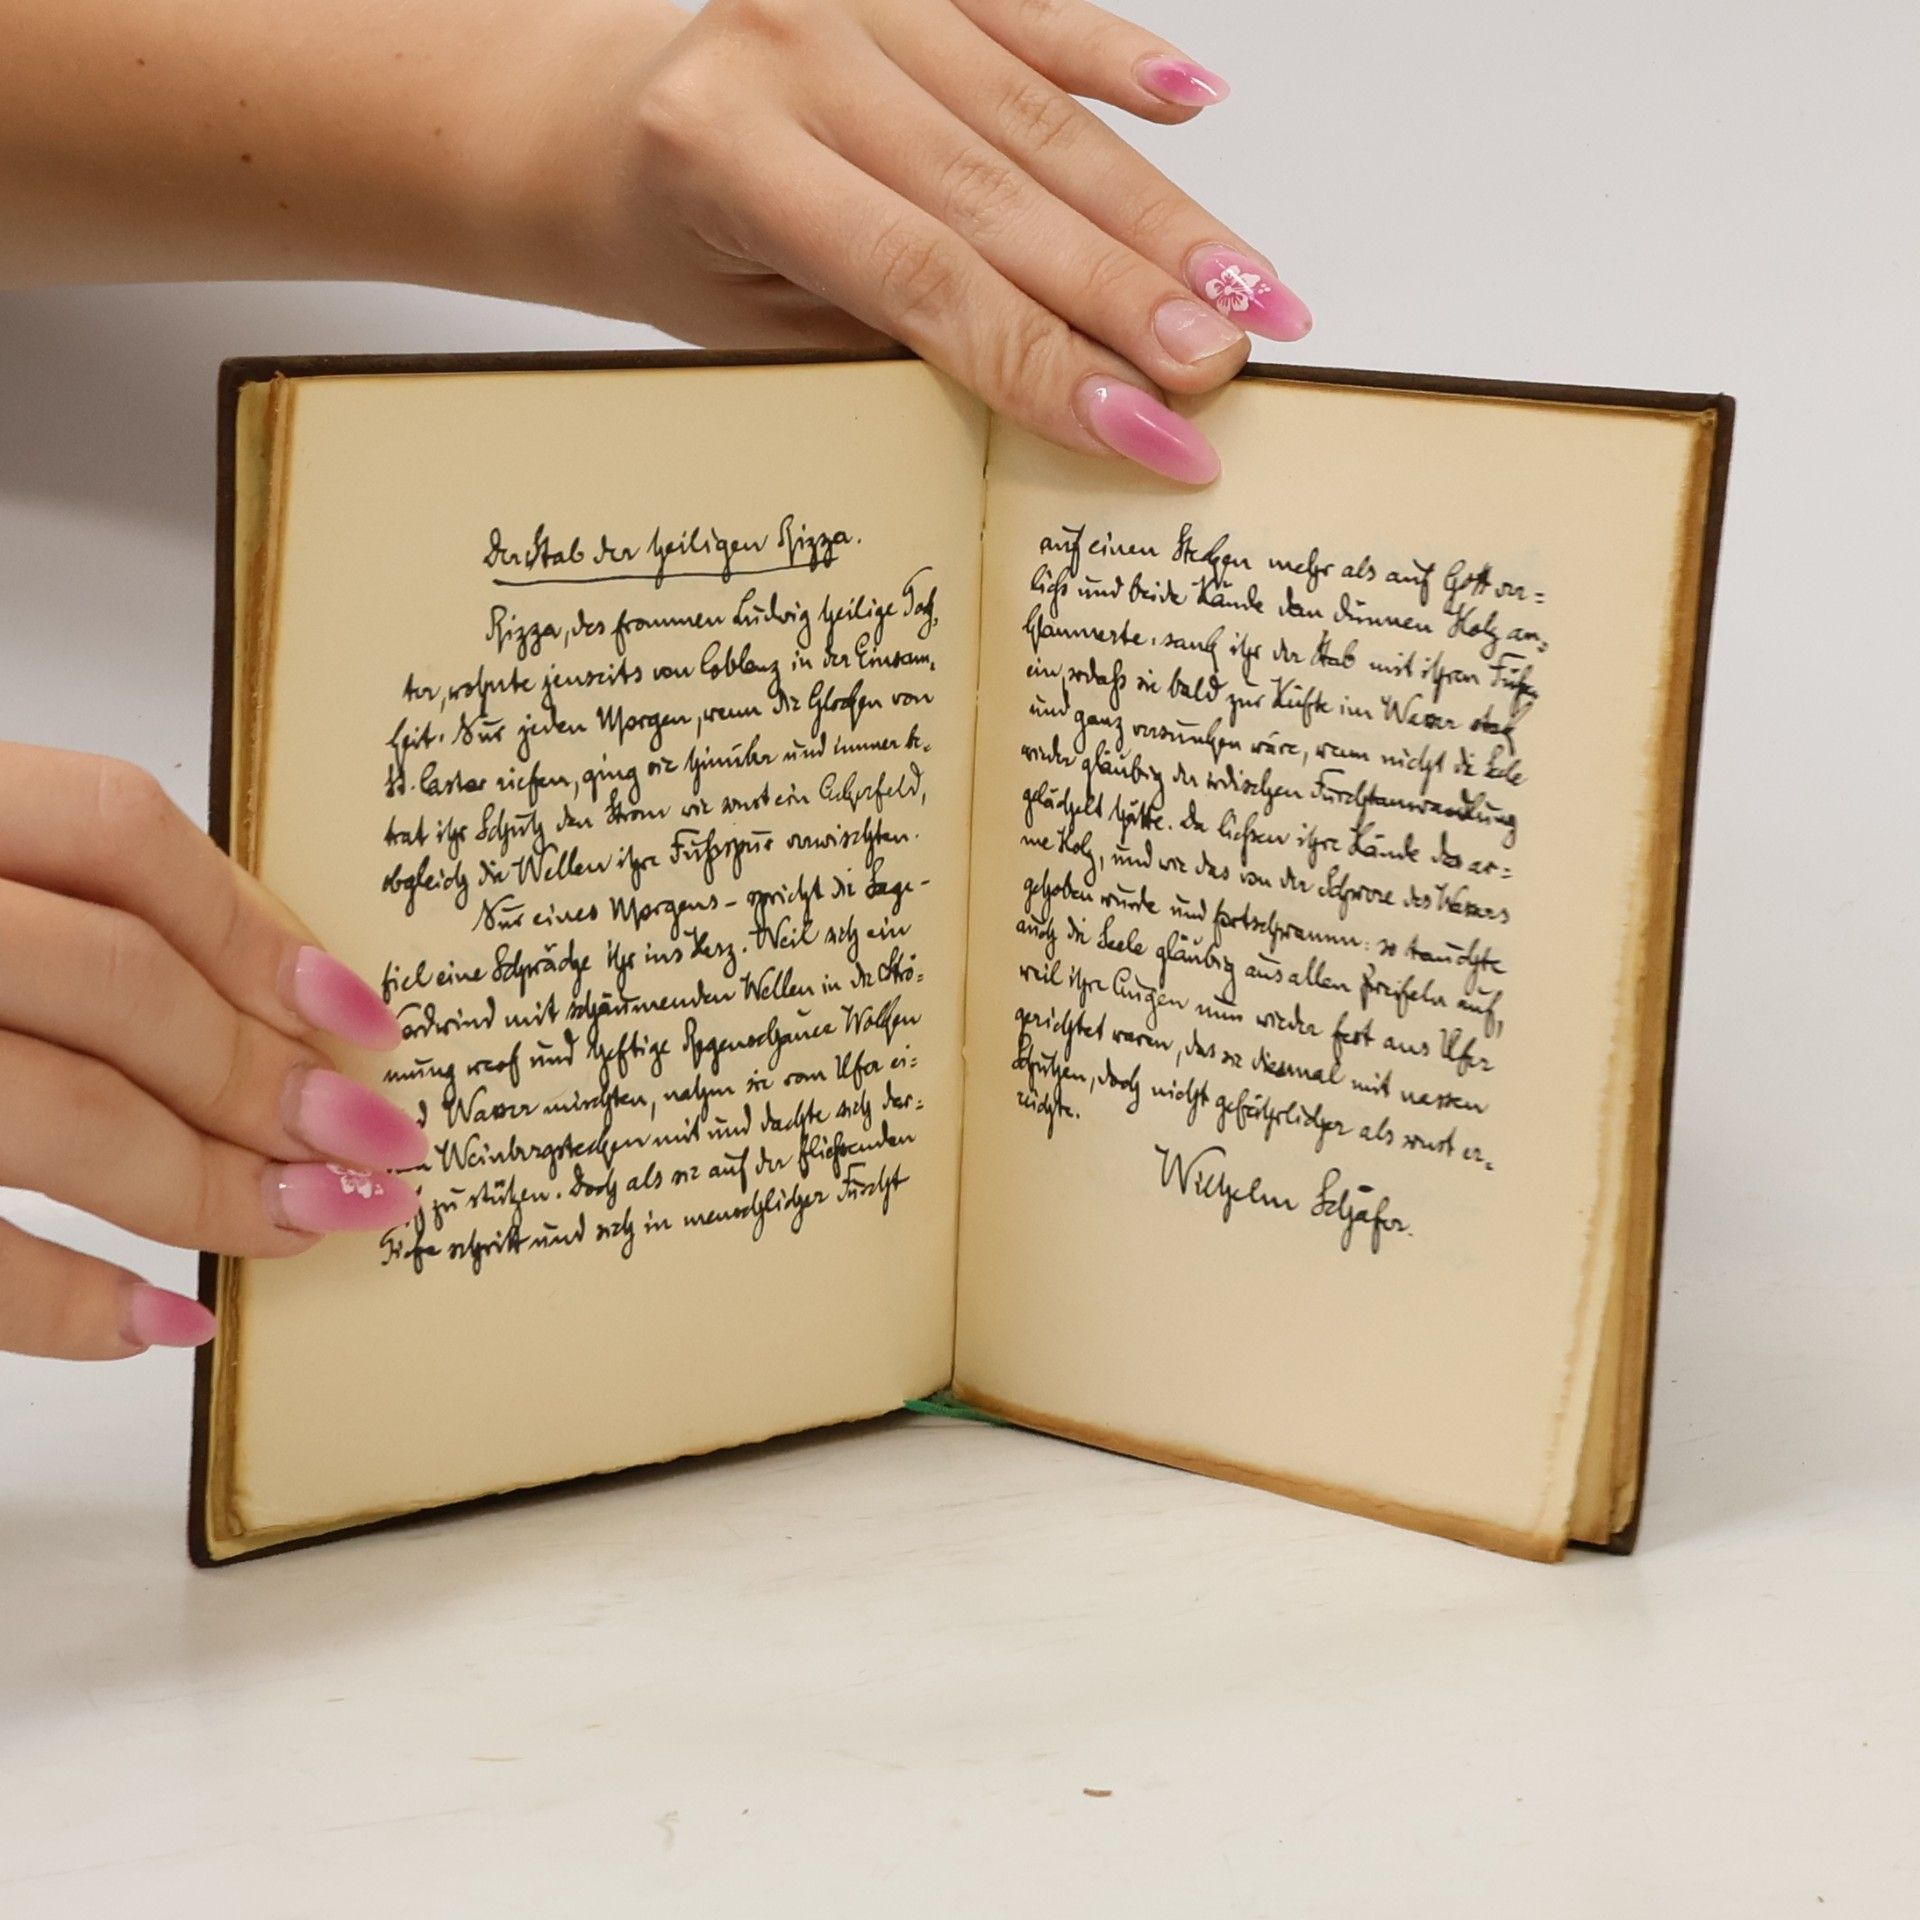 Der Stab der heiligen Rizza.
Rizza, des frommen Ludwig heilige Toch,
ter, wohnte jenseits von Coblenz in der Einsam,
keit. Nur jeden Morgen, wenn die Glocken von
St. Castor riefen, ging sie hinüber und immer be-
trat ihr Schuh den Strom wie sonst ein Ackerfeld,
obgleich die Wellen ihre Fußspur verwischten.
Nur eines Morgens - spricht die Sage -
fiel eine Schwäche ihr ins Herz. Weil sich ein
ordwind mit schäumenden Wellen in die Strö=
mung warf und heftige Regenschauer Wolken
d Wasser mischten, nahm sie vom Ufer ei=
Weinbergstecken mit und dachte sich dar=
zu stützen. Doch als sie auf der fließenden
Tiefe schritt und sich in menschlicher Furcht
auf einen Stecken mehr als auf Gott ver=
ließ und beide Hände dem dünnen Holz an=
klammerte, sank ihr der Stab mit ihren Füßen
ein, sodaß sie bald zur Hüfte im Wasser stak
und ganz versunken wäre, wenn nicht die Seele
wieder gläubig der irdischen Furchtanwandlung
gelächelt hätte. Da ließen ihre Hände das ar=
me Holz, und wie das von der Schwere des Wassers
gehoben wurde und fortschwamm: so tauchte
auch die Seele gläubig aus allen Zweifeln auf,
weil ihre Augen nun wieder fest ans Ufer
gerichtet waren, das sie diesmal mit nassen
Schuhen, doch nicht gefährlicher als sonst er=
reichte.
Wilhelm Schäfer.